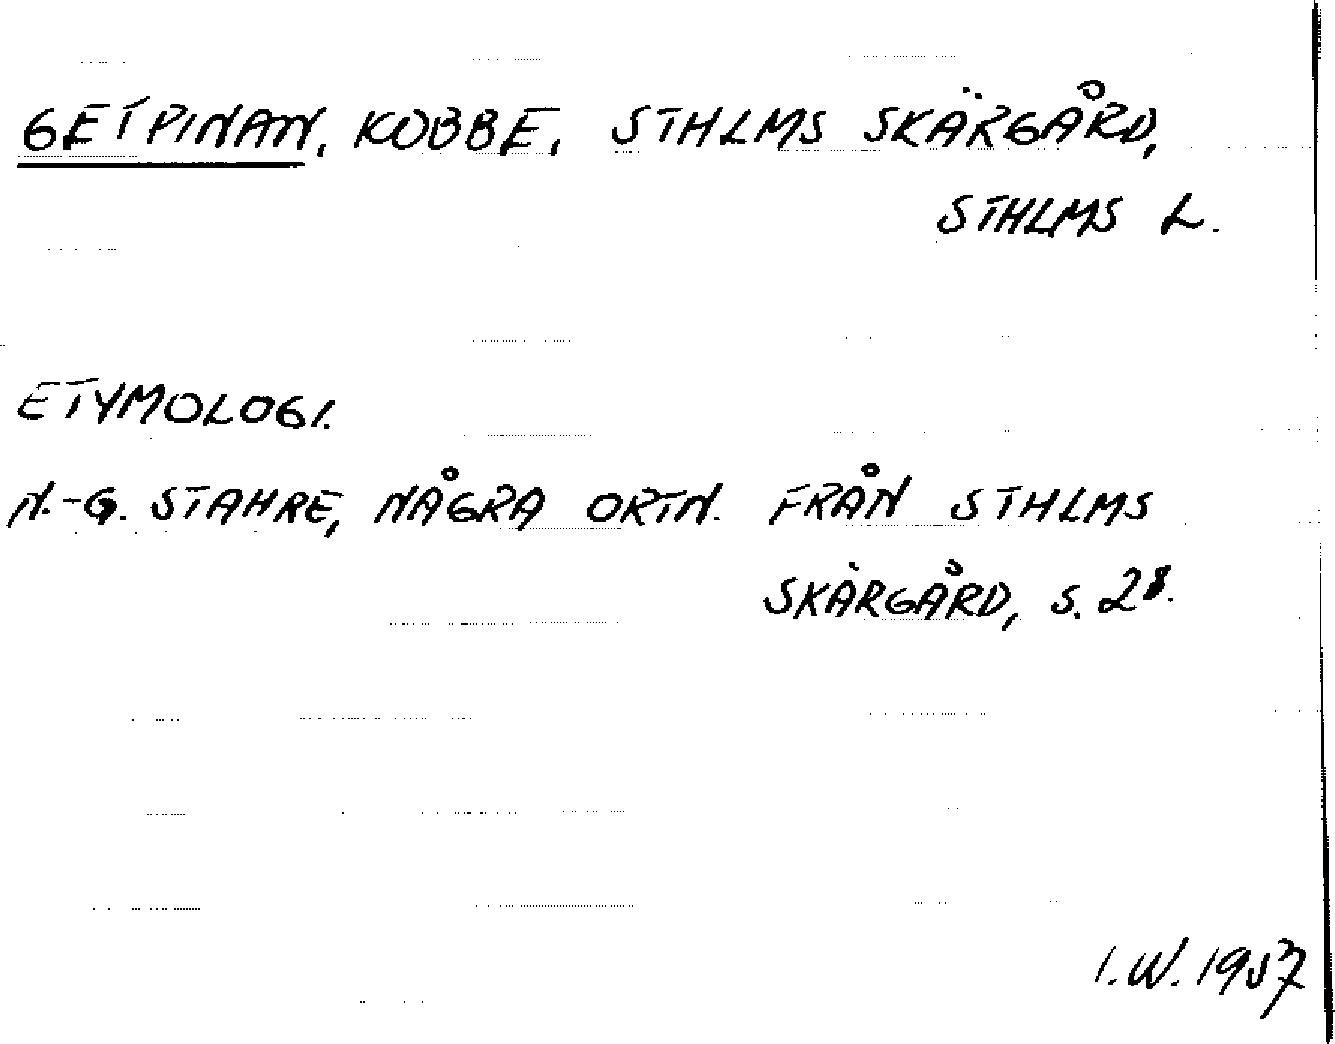 GETPINAN, KOBBE, STHLMS SKÄRGÅRD,
STHLMS L.
ETYMOLOGI.
N.-G. STAHRE, NÅGRA ORTN. FRÅN STHLMS
SKÄRGÅRD, S. 28.
I.W. 1957